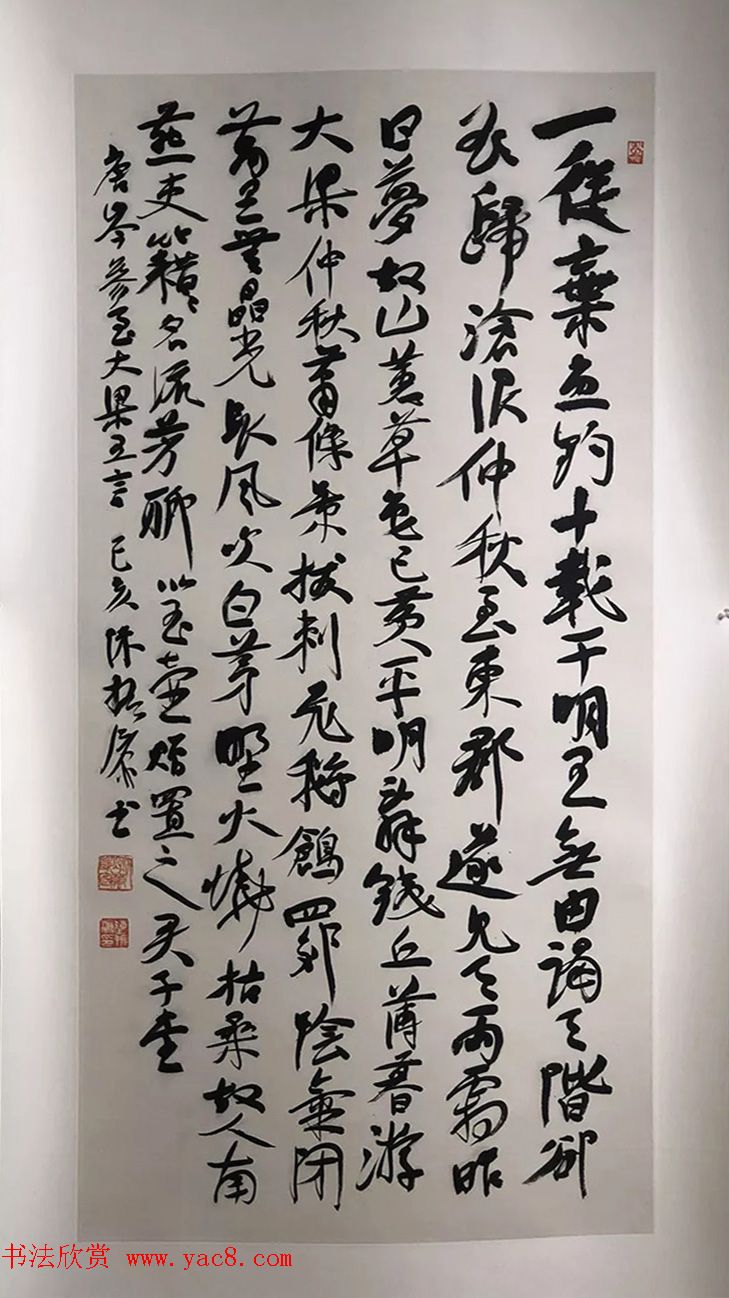 一從棄魚釣十載干明王無由謁天階卻
欲歸滄浪仲秋至東郡遂見天雨霜昨
日夢故山蕙草色已黃平明辭鐵丘薄暮游
大梁仲秋蕭條景拔刺飛鵝鶬四郊陰氣閉
萬里無晶光長風吹白茅野火燒枯桑故人南
燕吏籍籍名流芳聊以玉壺贈置之君子堂
唐岑參至大梁五言 己亥 陳振濂書
书法欣赏 www.yac8.com